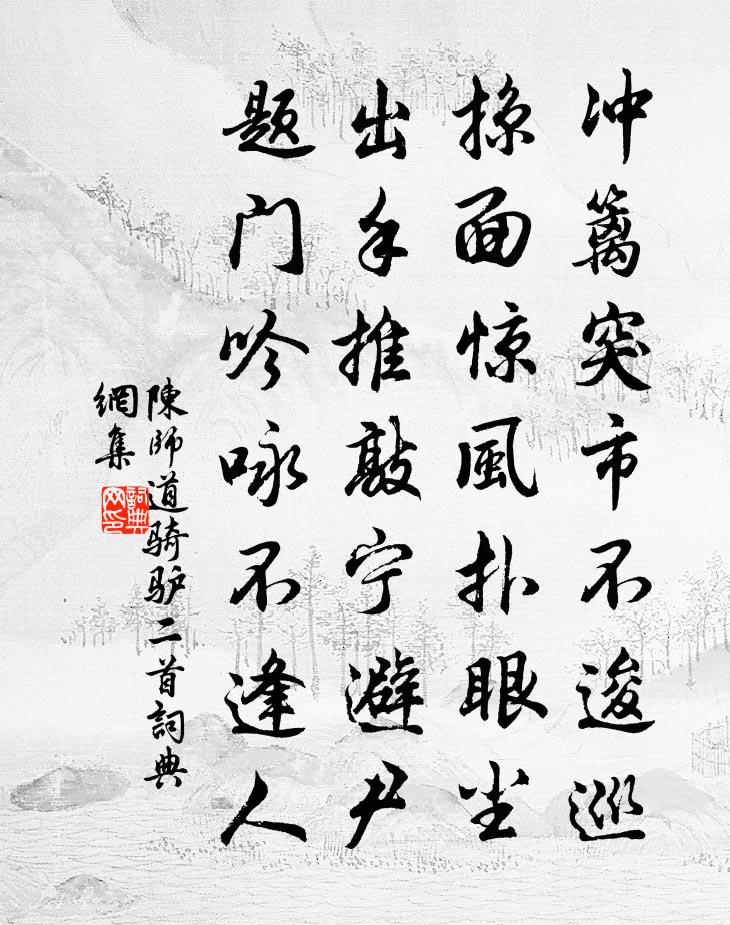 冲篱突市不逡巡
掠面惊風扑眼尘
出手推敲宁避尹
题门吟咏不逢人
陳師道骑驴二首詞典
網集
詞典
网印